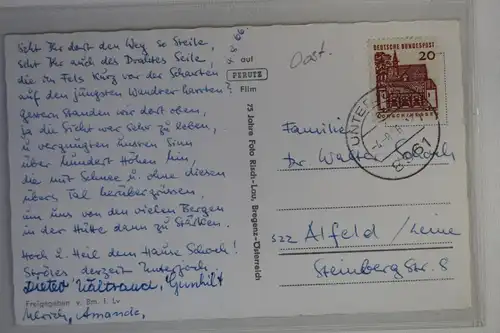 Seht Ihr dort den Weg so Steile,
Seht Ihr auch des Drahtes Seile,
die im Fels kurz vor der Scharten
auf den jüngsten Wandrer harrten?
Gestern standen wir dort oben,
ja die Sicht war sehr zu loben,
u vergnügten unsren Sinn
über hundert Höhen hin,
die mit Schnee u. ohne diesen
übers Tal herübergrüssen,
um uns von den vielen Bergen
in der Hütte dann zu stärken.
Hoch u. Heil dem Hause
derzeit Unterjoch.
Dieter Waltraud, Gunhilt
Freigegeben v. Bm. f. Lv
Ulrich, Amanda,
auf
PERUTZ
Film
75 Jahre Foto Risch-Lau, Bregenz-Österreich
DEUTSCHE BUNDESPOST
20
LORSCH/HESSEN
8961
Familie
Dr. Walter
322 Alfeld / Leine
Steinberg Str. 8